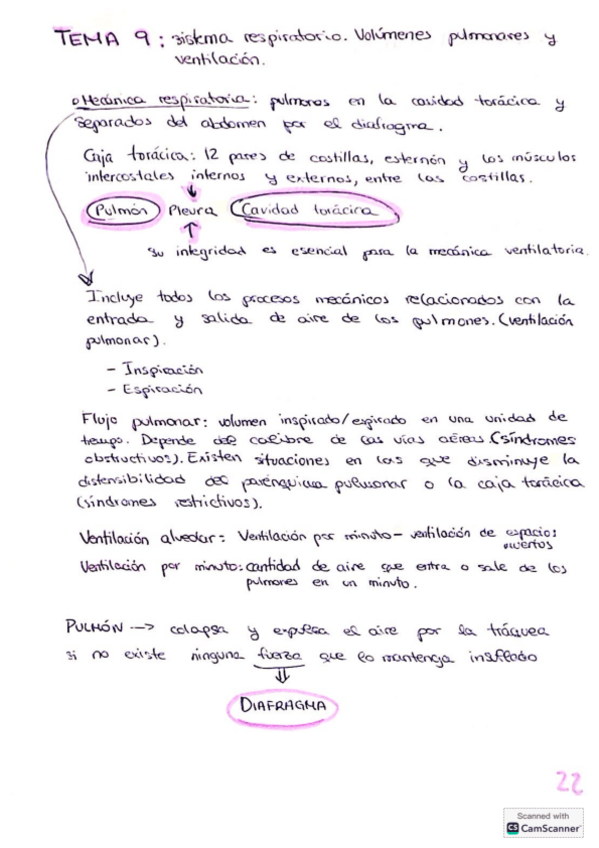 TEMA 9: sistema respiratorio. Volúmenes pulmonares y
ventilación.
Mecánica respiratoria: pulmones en la cavidad torácica y
separados del abdomen por el diafragma.
Caja torácica: 12 pares de costillas, esternón y los músculos
intercostales internos y externos, entre las costillas.
Pulmón Pleura Cavidad torácica
Su integridad es esencial para la mecánica ventilatoria.
Incluye todos los procesos mecánicos relacionados con la
entrada y salida de aire de los pulmones. (ventilación
pulmonar).
- Inspiración
- Espiración
Flujo pulmonar: volumen inspirado/espirado en una unidad de
tiempo. Depende del calibre de las vías aéreas (síndromes
obstructivos). Existen situaciones en las que disminuye la
distensibilidad del parénquima pulmonar o la caja torácica
(síndromes restrictivos).
Ventilación alveolar = Ventilación por minuto - ventilación de espacios
muertos
Ventilación por minuto: cantidad de aire que entra o sale de los
pulmones en un minuto.
PULMÓN --> colapsa y expulsa el aire por la tráquea
si no existe ninguna fuerza que lo mantenga insuflado
⇓
DIAFRAGMA
22
Scanned with
CS CamScanner